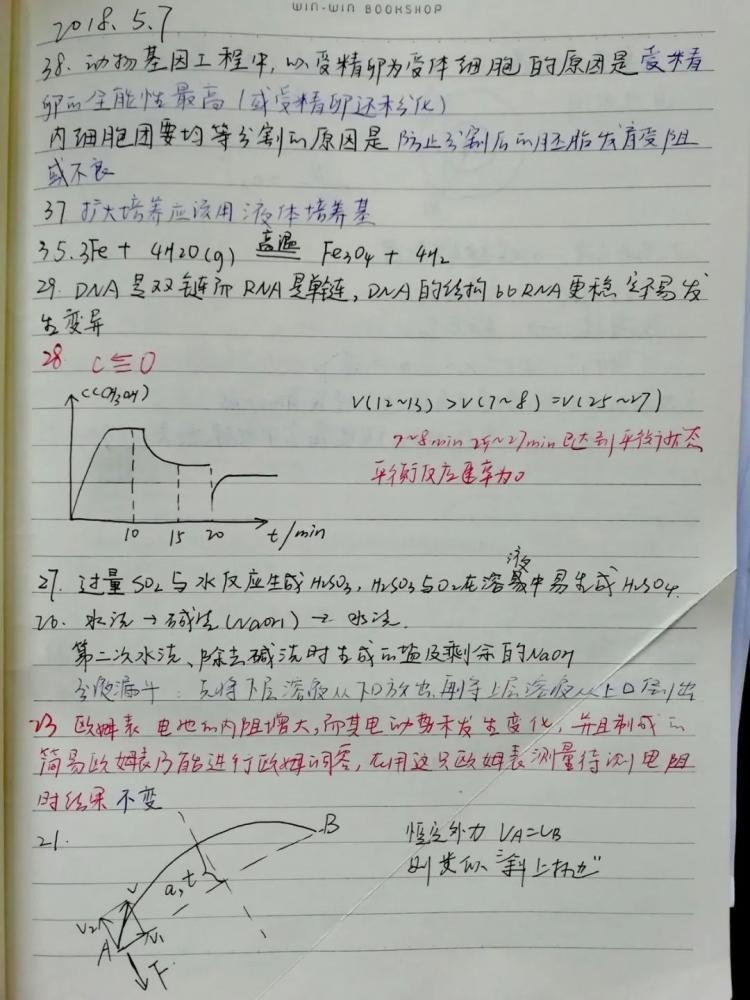 WIN-WIN BOOKSHOP
2018.5.7
38. 动物基因工程中,以受精卵为受体细胞的原因是受精
卵的全能性最高(或受精卵还未分化)
内细胞团要均等分割的原因是防止分割后的胚胎发育受阻
或不良
37 扩大培养应该用液体培养基
35. 3Fe + 4H2O(g) 高温 Fe3O4 + 4H2
29. DNA是双链而RNA是单链,DNA的结构比RNA更稳定不易发
生变异
28 C≡O
C(CH3OH)
V(12~13) > V(7~8) = V(25~27)
7~8min 25~27min已达到平衡状态
平衡反应速率为0
10 15 20 t/min
27. 过量SO2与水反应生成H2SO3, H2SO3与O2在溶液中易生成H2SO4.
26. 水洗→碱洗(NaOH)→水洗.
第二次水洗、除去碱洗时生成的盐及剩余的NaOH
分液漏斗:先将下层溶液从下口放出,再将上层溶液从上口倒出
23 欧姆表 电池的内阻增大,而其电动势未发生变化,并且制成的
简易欧姆表仍能进行欧姆调零,在用这只欧姆表测量待测电阻
时结果不变
21. B
恒定外力 VA=VB
则类似"斜上抛"
a,t
V
V2 V1
A
F